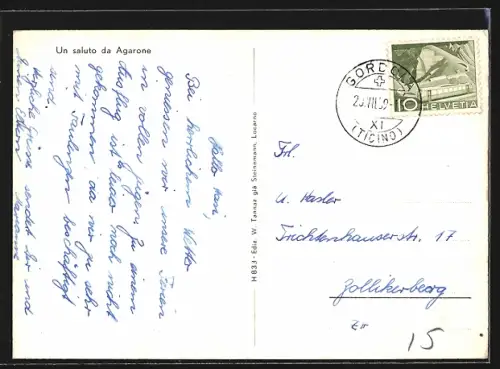 Un saluto da Agarone
Hallo
Bei herrlichem Wetter
geniessen wir unsere Ferien
in vollen Zügen. Zu einem
Ausflug ist es noch nicht
gekommen da wir zu sehr
mit Faulenzen beschäftigt
sind.
Herzliche Grüsse sendet Dir und
Deinen Eltern
H 833 - Ediz. W. Tannaz già Steinemann, Locarno
GORDOLA
XI
(TICINO)
10
HELVETIA
Frl.
U. Hasler
Trichtenhauserstr. 17
Zollikerberg
ZH
15